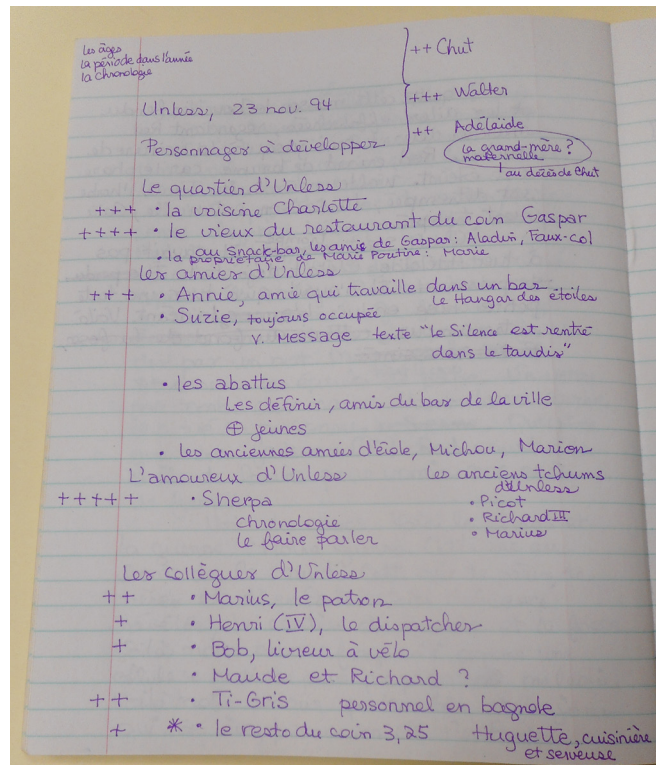 les âges
la période dans l'année
la chronologie
++ Chut
+++ Walter
++ Adélaïde
la grand-mère?
maternelle
au décès de Chut
Unless, 23 nov. 94
Personnages à développer
Le quartier d'Unless
+++ • la voisine Charlotte
++++ • le vieux du restaurant du coin Gaspar
au snack-bar, les amis de Gaspar: Aladin, Faux-col
• la propriétaire de Marie Poutine: Marie
Les amies d'Unless
+++ • Annie, amie qui travaille dans un bar
le Hangar des étoiles
• Suzie, toujours occupée
V. Message texte "le Silence est rentré
dans le taudis"
• les abattus
Les définir, amis du bar de la ville
⊕ jeunes
• les anciennes amies d'école, Michou, Marion
L'amoureux d'Unless
+++++ • Sherpa
chronologie
le faire parler
Les anciens tchums
d'Unless
• Picot
• Richard III
• Marius
Les collègues d'Unless
++ • Marius, le patron
+ • Henri (IV), le dispatcher
+ • Bob, livreur à vélo
• Maude et Richard ?
++ • Ti-Gris personnel en bagnole
+ * • le resto du coin 3,25 Huguette, cuisinière
et serveuse